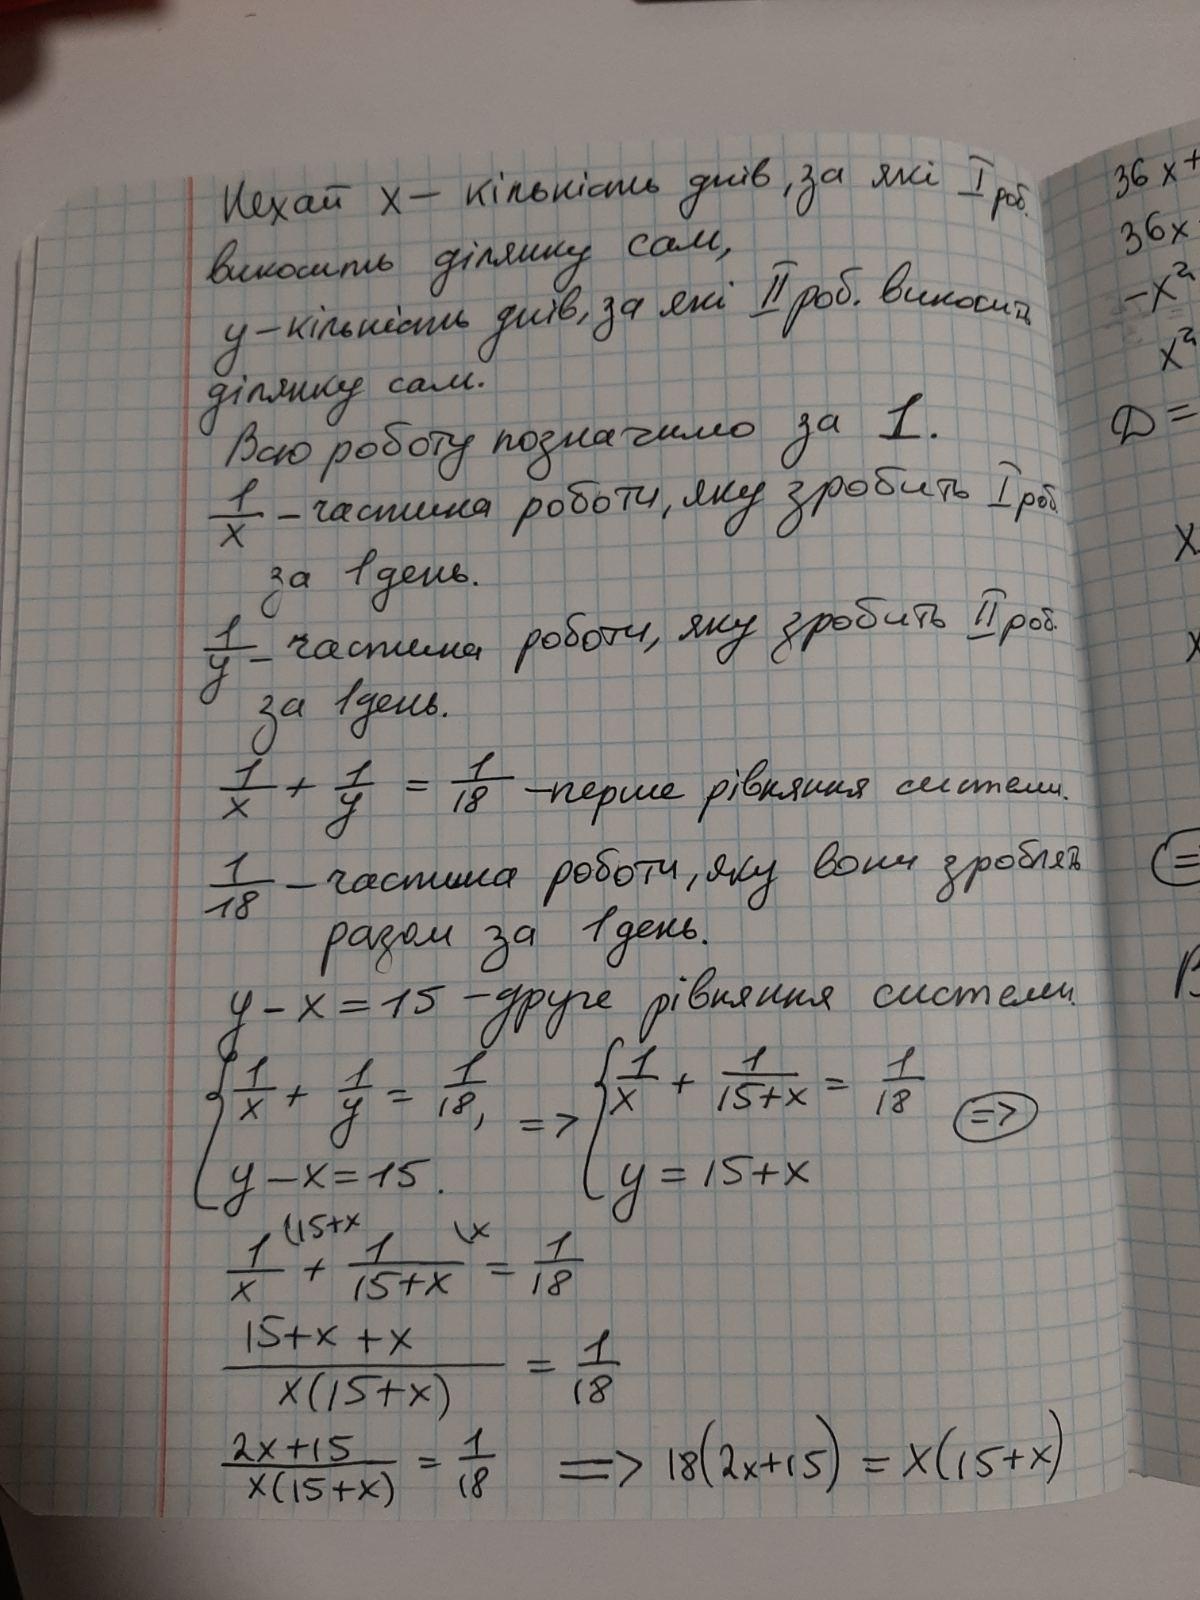 Нехай x – кількість днів, за які I роб.
викосить ділянку сам,
y – кількість днів, за які II роб. викосить
ділянку сам.
Всю роботу позначимо за 1.
1/x – частина роботи, яку зробить I роб.
за 1 день.
1/y – частина роботи, яку зробить II роб.
за 1 день.
1/x + 1/y = 1/18 – перше рівняння системи.
1/18 – частина роботи, яку вони зроблять
разом за 1 день.
y – x = 15 – друге рівняння системи.
{ 1/x + 1/y = 1/18, => { 1/x + 1/(15+x) = 1/18 =>
y – x = 15. y = 15 + x
1/x (15+x + 1/(15+x) \x = 1/18
(15+x+x)/(x(15+x)) = 1/18
(2x+15)/(x(15+x)) = 1/18 => 18(2x+15) = x(15+x)
36x+
36x
-x²
x²
D =
x
x
=
В